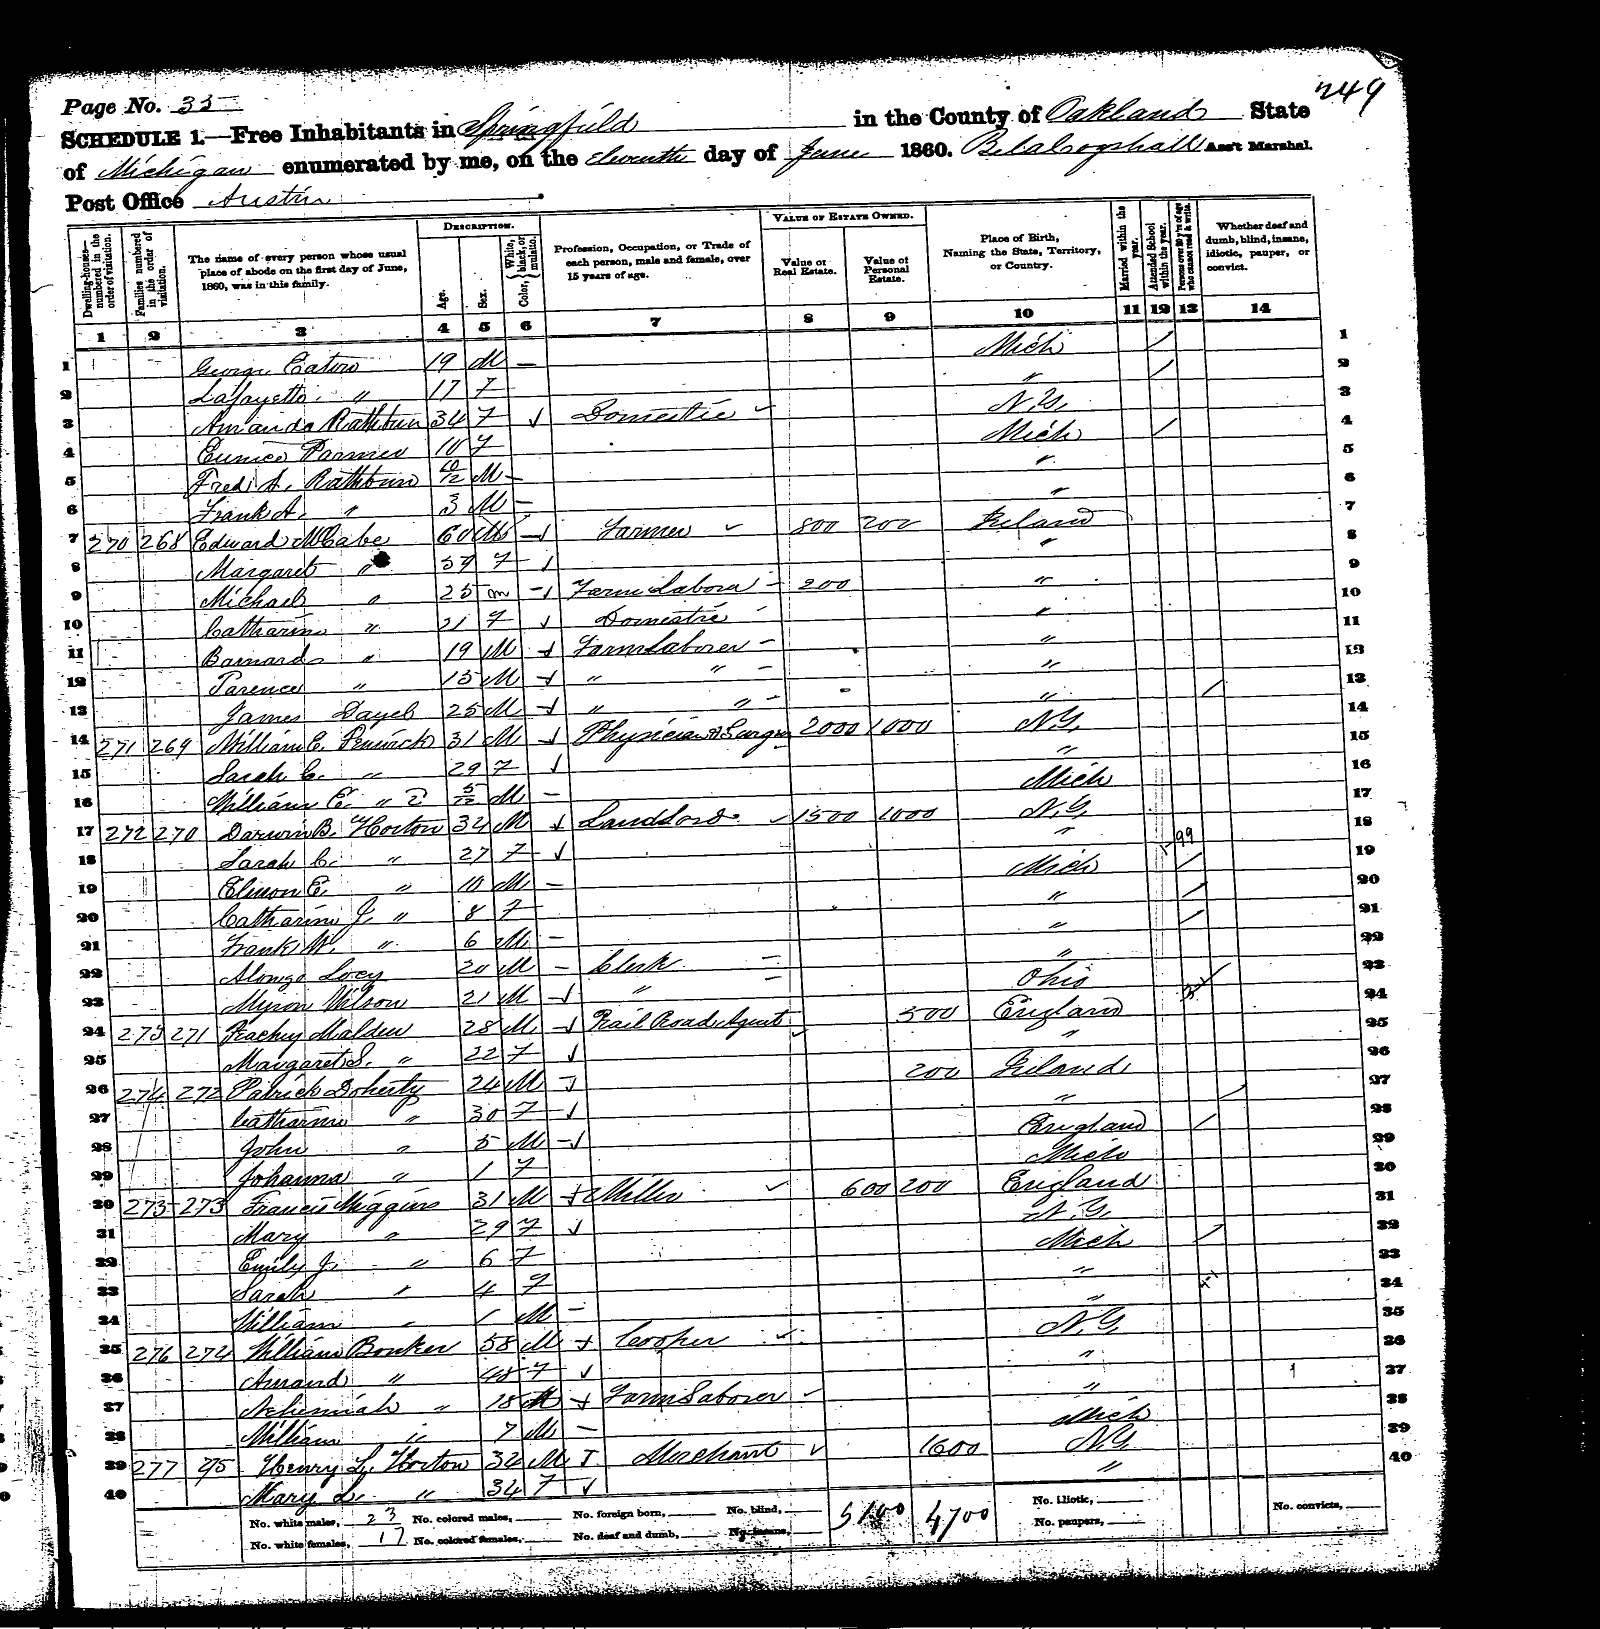 749
Page No. 35
SCHEDULE 1.—Free Inhabitants in Springfield in the County of Oakland State
of Michigan enumerated by me, on the Eleventh day of June 1860. Bela Cogshall Ass't Marshal.
Post Office Austin
Dwelling-house—numbered in the order of visitation. Families numbered in the order of visitation. The name of every person whose usual place of abode on the first day of June, 1860, was in this family. DESCRIPTION. Age. Sex. Color, White, black, or mulatto. Profession, Occupation, or Trade of each person, male and female, over 15 years of age. VALUE OF ESTATE OWNED. Value of Real Estate. Value of Personal Estate. Place of Birth, Naming the State, Territory, or Country. Married within the year. Attended School within the year. Persons over 20 y'rs of age who cannot read & write. Whether deaf and dumb, blind, insane, idiotic, pauper, or convict.
1 2 3 4 5 6 7 8 9 10 11 12 13 14
1 George Eaton 19 M — Mich / 1
2 Lafayette " 17 F " / 2
3 Amanda Rathbun 34 F Domestic N.Y. 3
4 Eunice 10 F Mich / 4
5 Fred A. Rathbun 10/12 M — " 5
6 Frank A. " 3 M — " 6
7 270 268 Edward McCabe 60 M Farmer 800 200 Ireland 7
8 Margaret " 59 F " 8
9 Michael " 25 m Farm Labora 200 " 9
10 Catharine " 21 F Domestic " 10
11 Barnard " 19 M Farm Laborer " 11
12 Terence " 15 M " " " 12
13 James 25 M " " " / 13
14 271 269 William E. Fenwick 31 M Physician & Surgeon 2000 1000 N.Y. 14
15 Sarah C. " 29 F " 15
16 William E. " 2 5/12 M — Mich 16
17 272 270 Darwin B. Horton 32 M Landlord 1500 1000 N.Y. 17
18 Sarah C. " 27 F " 99 18
19 E. " 10 M — Mich / 19
20 Catharine J. " 8 F " / 20
21 Frank W. " 6 M — " / 21
22 Alonzo Locy 20 M — Clerk " 22
23 Myron Wilson 21 M " Ohio 23
24 273 271 Malden 28 M Rail Road Agent 500 England 24
25 Margaret S. " 22 F " 25
26 274 272 Patrick Doherty 24 M 200 Ireland 26
27 Catharine " 30 F " / 27
28 John " 5 M England / 28
29 Johanna " 1 F Mich 29
30 275 273 Francis Higgins 31 M Miller 600 200 England 30
31 Mary " 29 F N.Y. 31
32 Emily J. " 6 F Mich / 32
33 Sarah " 4 F " 33
34 William " 1 M — " 34
35 276 274 William Bonker 58 M Cooper N.Y. 35
36 Amand " 48 F " 36
37 Nehemiah " 18 M Farm Laborer " 37
38 William " 7 M — Mich 38
39 277 275 Henry L. Horton 32 M Merchant 1600 N.Y. 39
40 Mary L. " 34 F " 40
No. white males, 23 No. colored males, No. foreign born, No. blind, 5100 4700 No. idiotic, No. convicts,
No. white females, 17 No. colored females, No. deaf and dumb, No. insane, No. paupers,